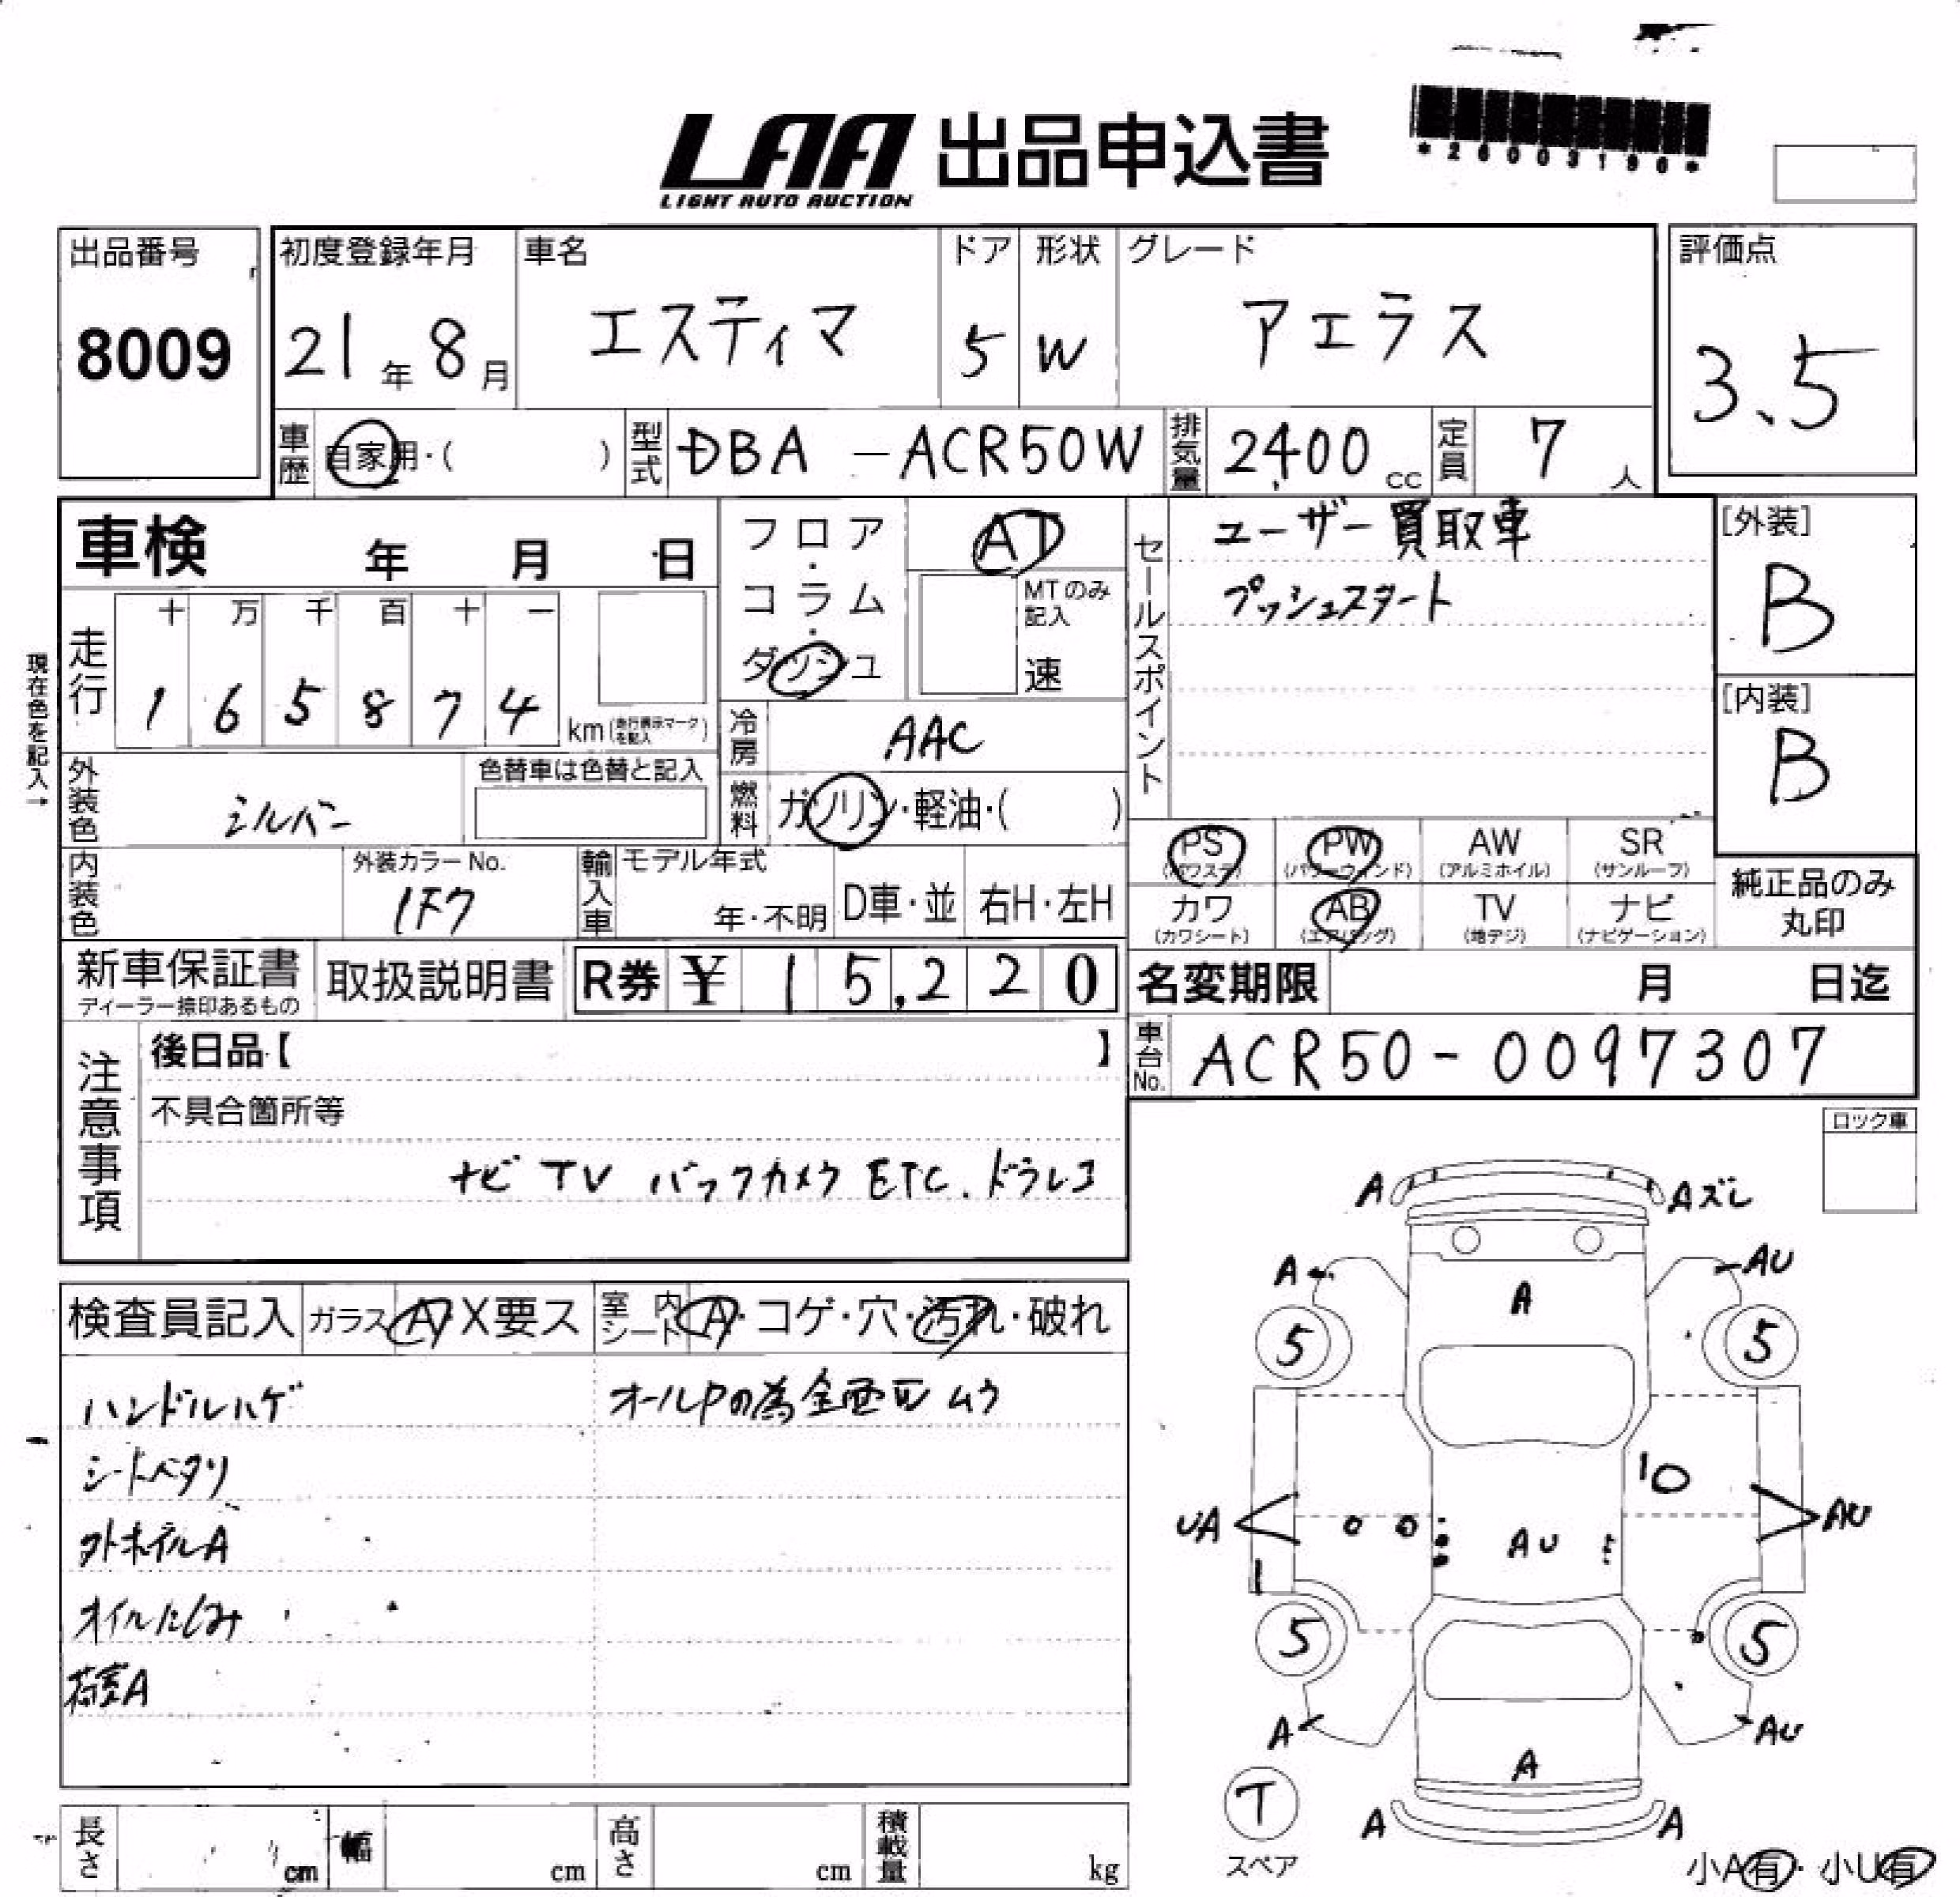 LAA 出品申込書
LIGHT AUTO AUCTION
*26003196*
出品番号
8009
初度登録年月
21年 8月
車名
エスティマ
ドア
5
形状
W
グレード
アエラス
評価点
3.5
車歴
自家用・( )
型式
DBA-ACR50W
排気量
2400 cc
定員
7 人
車検 年 月 日
現在色を記入→
走行
十 万 千 百 十 一
1 6 5 8 7 4
km(走行表示マークを記入)
フロア・コラム・ダッシュ
AT
MTのみ記入
速
冷房
AAC
燃料
ガソリン・軽油・( )
外装色
シルバー
色替車は色替と記入
内装色
外装カラーNo.
1F7
輸入車
モデル年式
年・不明
D車・並
右H・左H
セールスポイント
ユーザー買取車
プッシュスタート
[外装]
B
[内装]
B
PS
(パワステ)
PW
(パワーウィンド)
AW
(アルミホイル)
SR
(サンルーフ)
カワ
(カワシート)
AB
(エアバッグ)
TV
(地デジ)
ナビ
(ナビゲーション)
純正品のみ
丸印
新車保証書
ディーラー捺印あるもの
取扱説明書
R券 ¥15,220
名変期限 月 日迄
車台No.
ACR50-0097307
注意事項
後日品【 】
不具合箇所等
ナビ TV バックカメラ ETC. ドラレコ
ロック車
検査員記入
ガラス A・X要ス
室内シート A・コゲ・穴・汚れ・破れ
ハンドルハゲ
オールPの為全面 ムラ
シートヘタリ
外ホイルA
オイルにじみ
荷室A
A
Aズレ
A
AU
A
5
5
10
UA
AU
AU
1
5
5
A
AU
A
T
スペア
A
A
小A有・小U有
長さ cm
幅 cm
高さ cm
積載量 kg